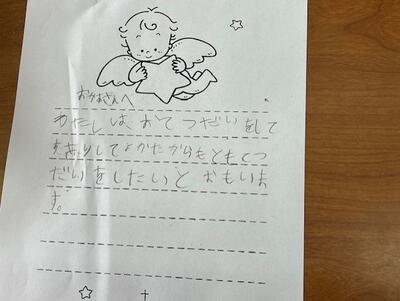 おかあさんへ
わたしは、おてつだいをして
すきりしてよかたからもともてつ
だいをしたいとおもいま
す。